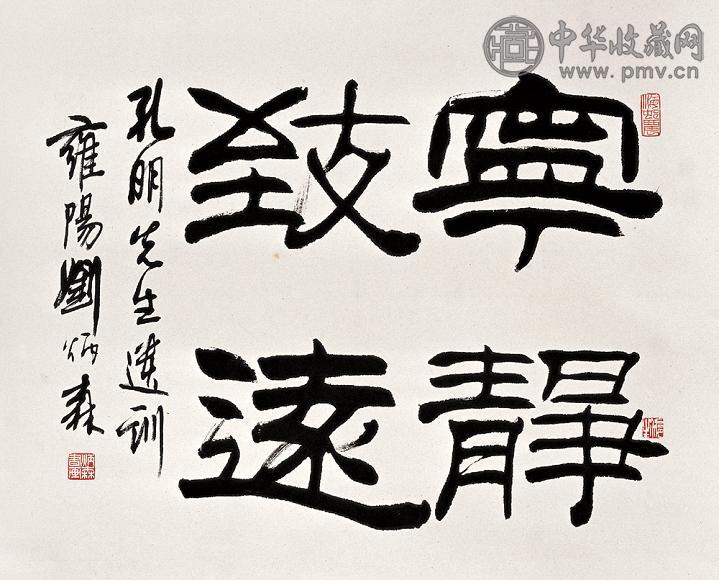 中华收藏网
www.pmv.cn
寧靜
致遠
孔明先生遺訓
雍陽劉炳森